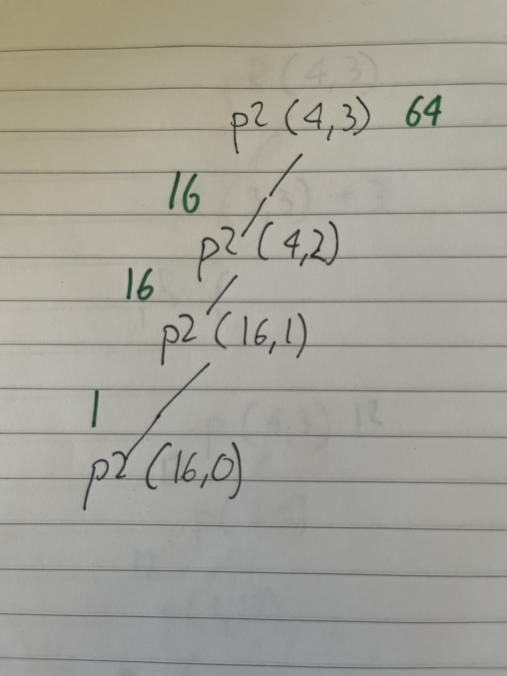 p2 (4,3) 64
16
p2 (4,2)
16
p2 (16,1)
1
p2 (16,0)